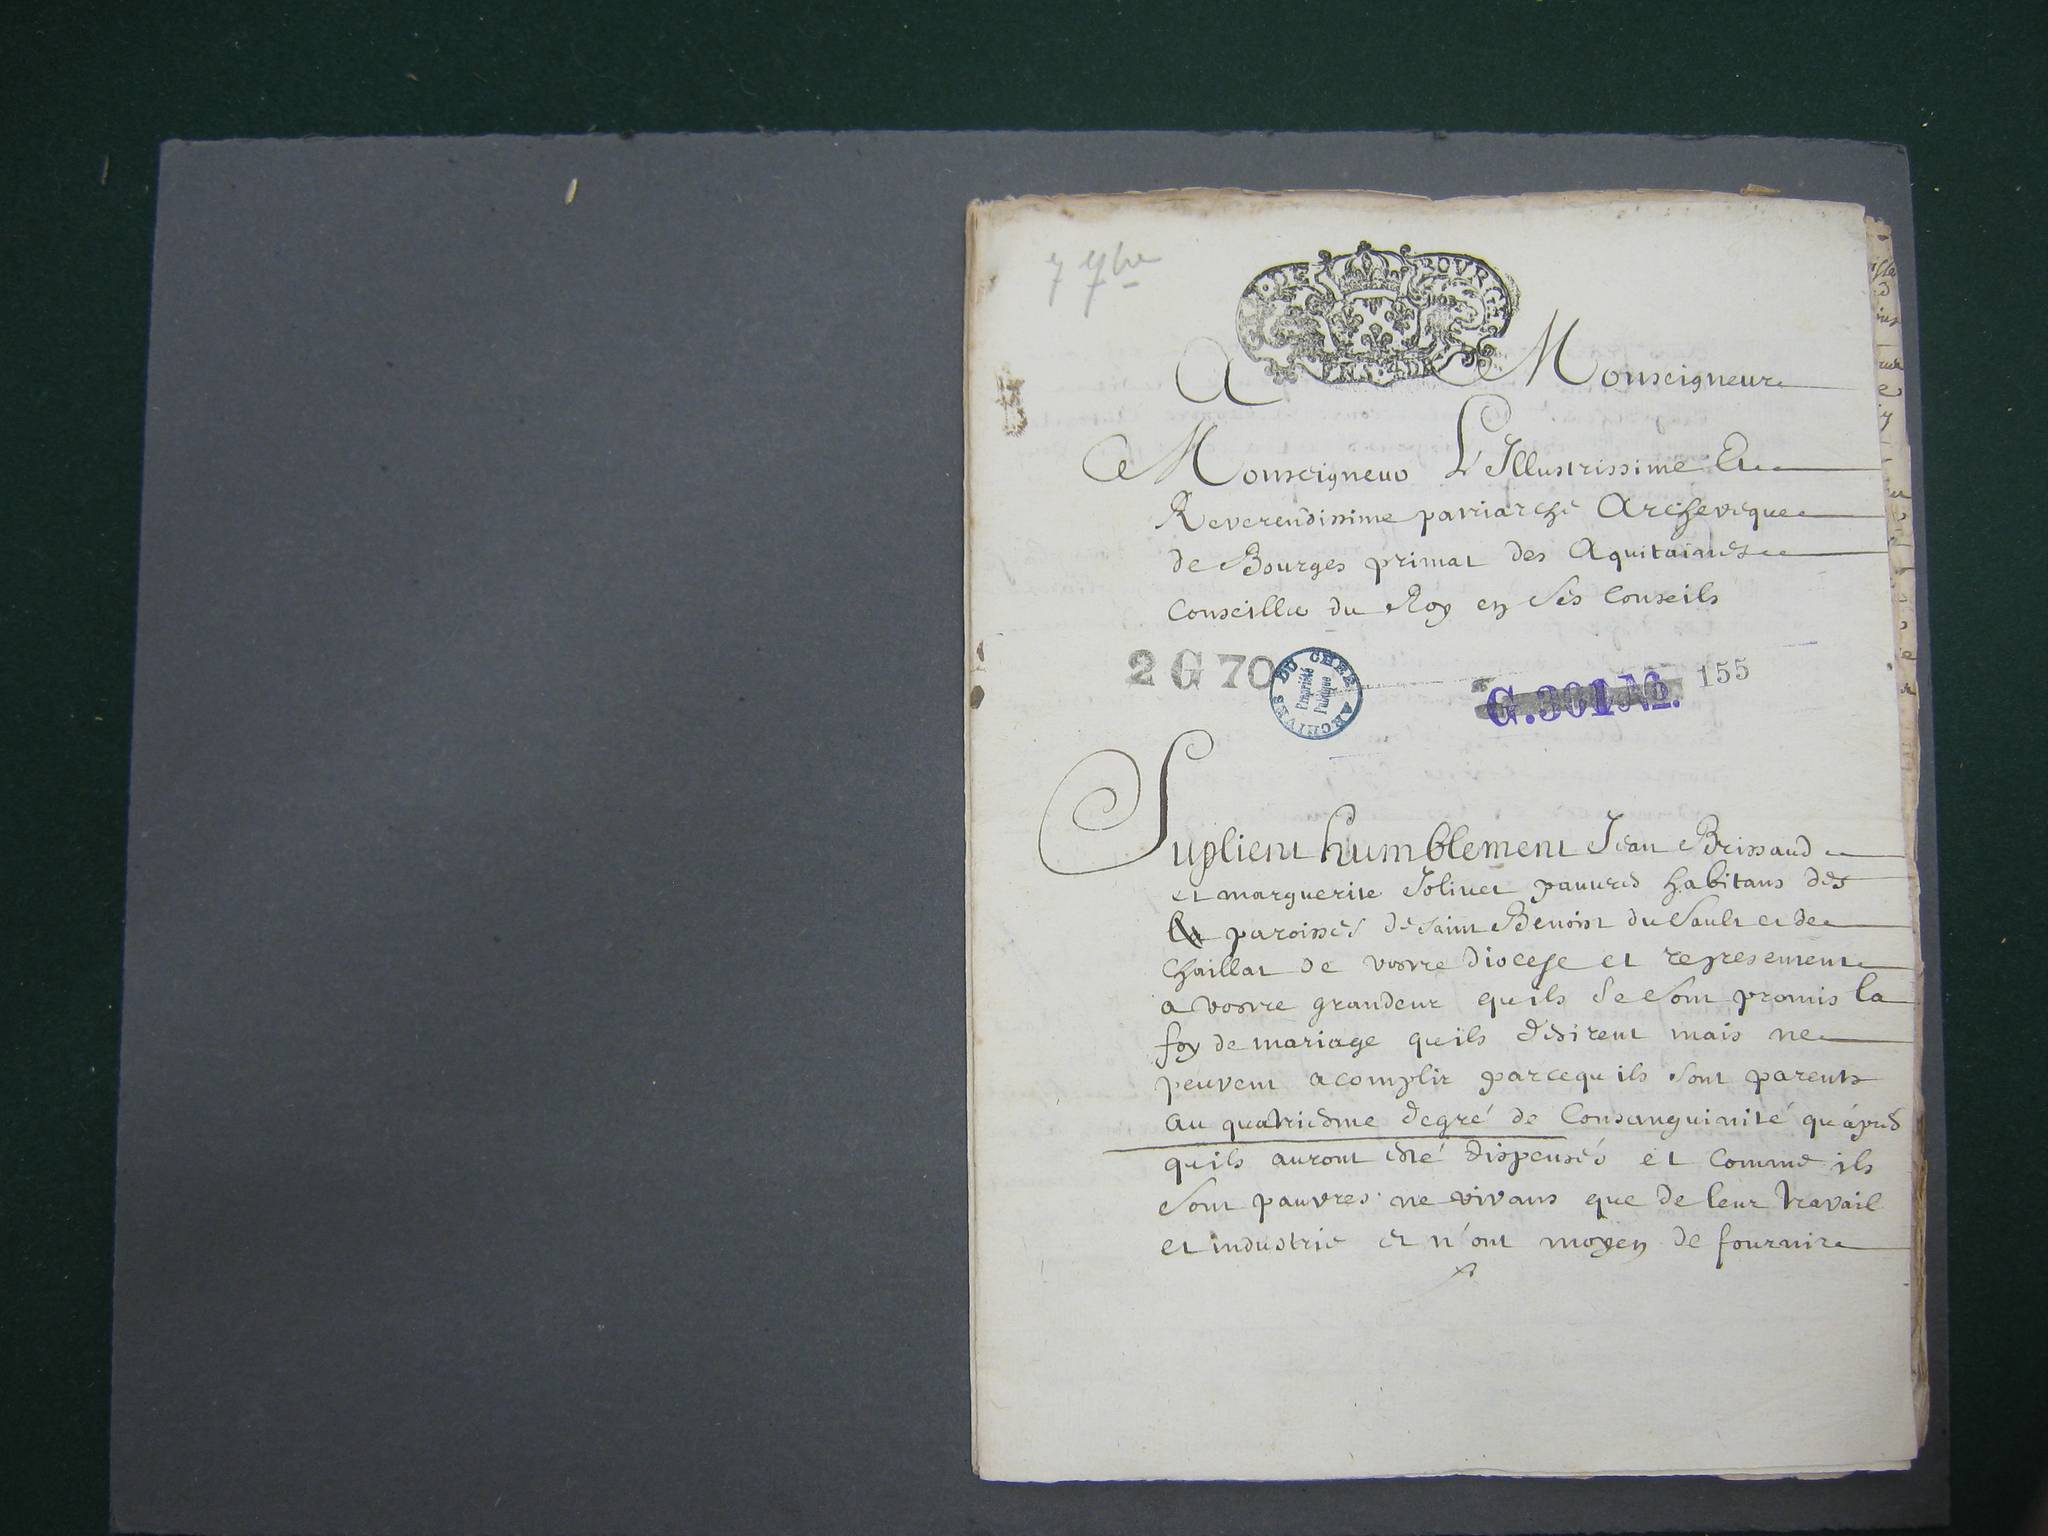 7 7bre
A Monseigneur
Monseigneur L'Illustrissime Et
Reverendissime patriarche Archevesque
de Bourges primat des Aquitaines
Conseiller du Roy en Ses Conseils
2 G 70
ARCHIVES DU CHER
Propriété
Publique
155
Suplient humblement Jean Brissaud
et marguerite Jolivet pauures habitans des
paroisses de Saint Benoist du Sault et de
Chaillat de vostre diocese et representent
a vostre grandeur quils Se Sont promis la
foy de mariage quils desirent mais ne
peuvent acomplir parcequils Sont parents
au quatriesme degré de Consanguinité qu'apres
quils auront esté dispensés et Comme ils
Sont pauvres ne vivans que de leur travail
et industrie et n'ont moyen de fournir